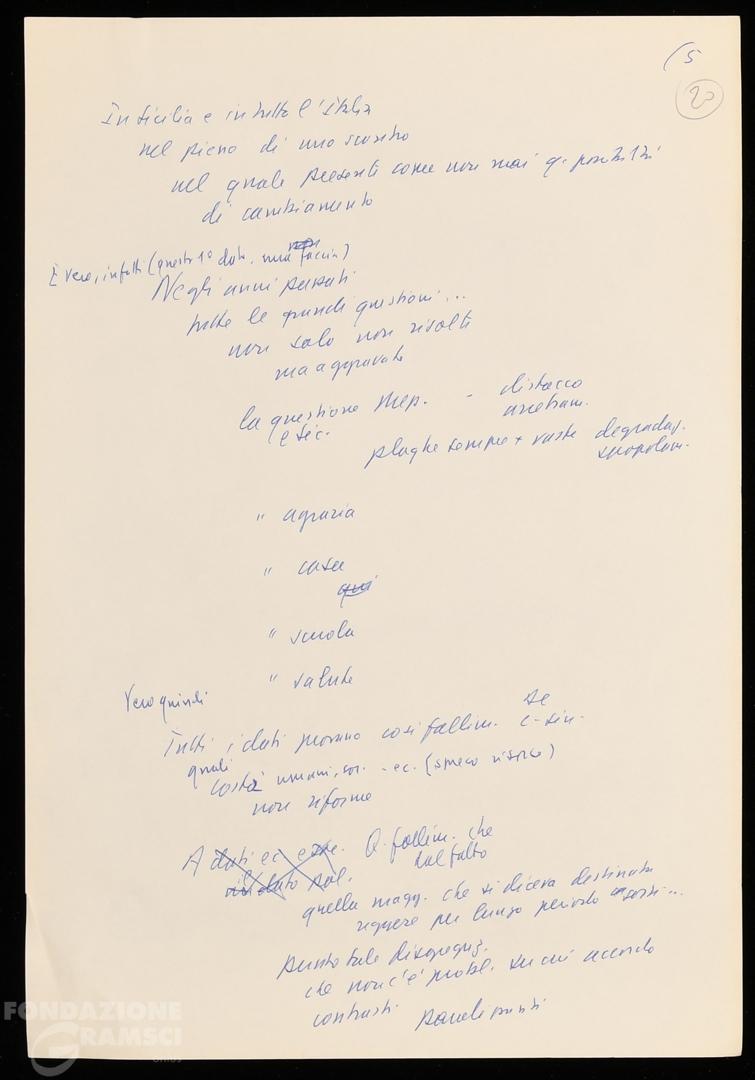 (5
20
In Sicilia e in tutta l'Italia
nel pieno di uno scontro
nel quale presenti come non mai q. possibilità
di cambiamento
È vero, infatti (questo 1° dato, una faccia)
Negli anni passati
tutte le grandi questioni...
non solo non risolte
ma aggravate
la questione Mer. - distacco
e sic. arretram.
plaghe sempre + vaste degradaz.
spopolam.
" agraria
" casa
qui
" scuola
" salute
Vero quindi
Tutti i dati provano così fallim. se
c-sin.
quali
costi umani, soc. - ec. (spreco risorse)
non riforme
A dati ec e
dato pol.
Q. fallim. che
dal fatto
quella magg. che si diceva destinata
reggere per lungo periodo
punto tale disgregaz.
che non c'è probl. su cui accordo
contrasti